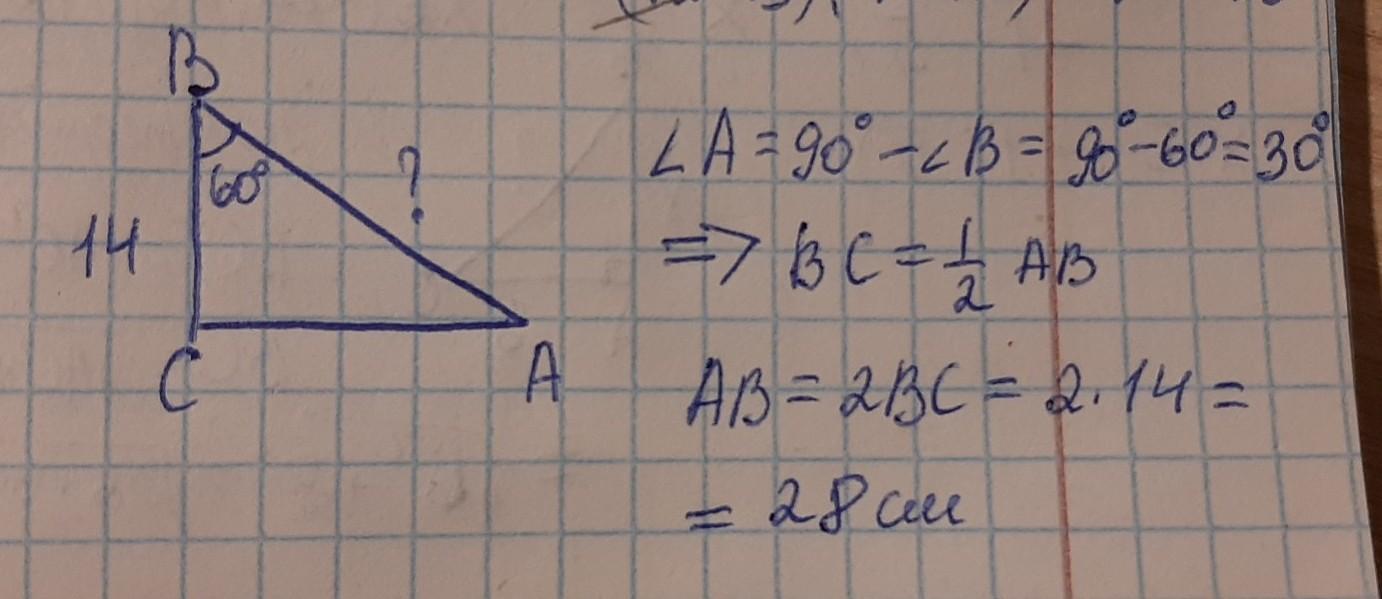 B
60°
?
14
C
A
∠A = 90° - ∠B = 90° - 60° = 30°
=> BC = 1/2 AB
AB = 2BC = 2 · 14 =
= 28 см